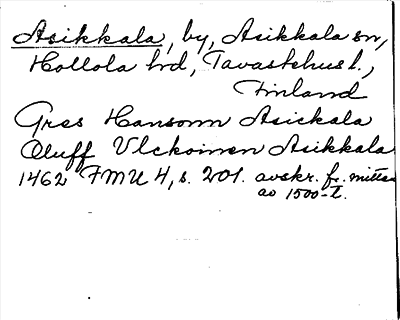 Asikkala, by, Asikkala sn,
Hollola hd, Tavastehus l.,
Finland
Gres Hansonn Asickala
Oluff Vlckoinen Asikkala
1462 FMU 4, s. 201. avskr. fr. mitten
av 1500-t.